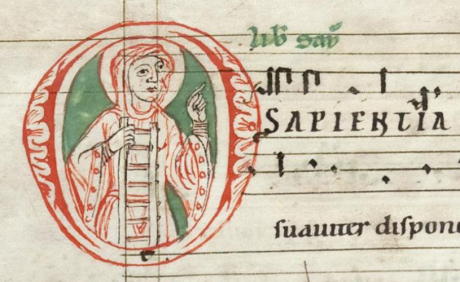 O SAPIENTIA
suauiter dispone